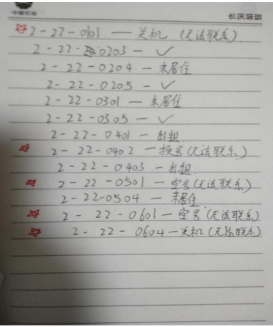 ☆ 2-22-0101 — 关机 (无法联系)
2-22-0203 — ✓
2-22-0204 — 未居住
2-22-0205 — ✓
2-22-0301 — 未居住
2-22-0305 — ✓
2-22-0401 — 出租
☆ 2-22-0402 — 换号 (无法联系)
2-22-0403 — 出租
☆ 2-22-0501 — 空号 (无法联系)
2-22-0504 — 未居住
☆ 2-22-0601 — 空号 (无法联系)
☆ 2-22-0604 — 关机 (无法联系)